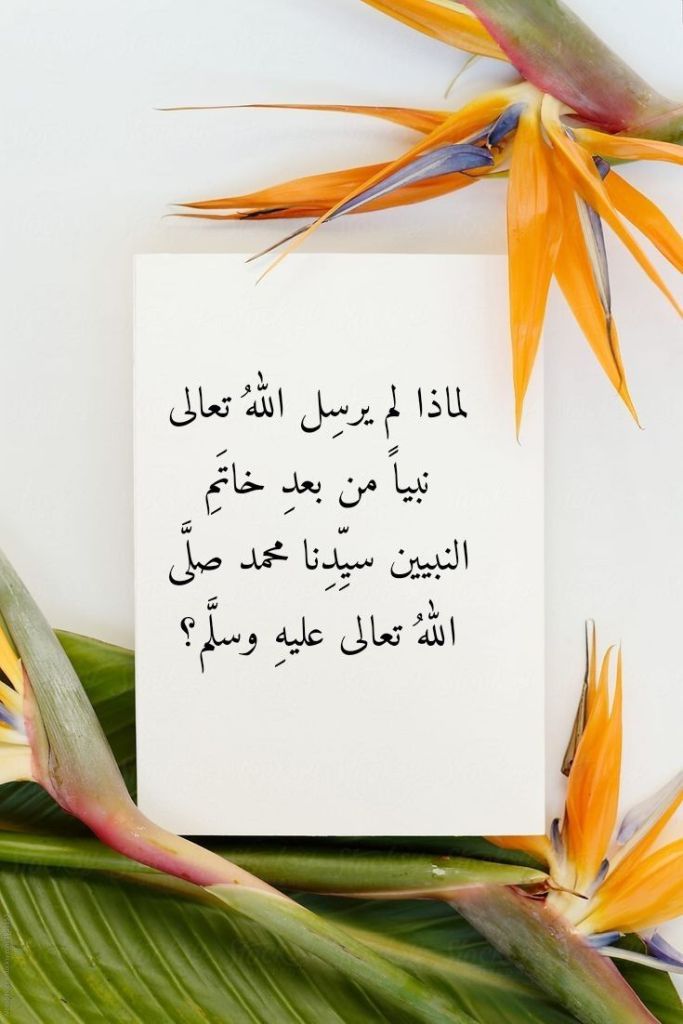 لماذا لم يرسِل اللهُ تعالى
نبياً من بعدِ خاتَمِ
النبيين سيِّدِنا محمد صلَّى
اللهُ تعالى عليهِ وسلَّم؟